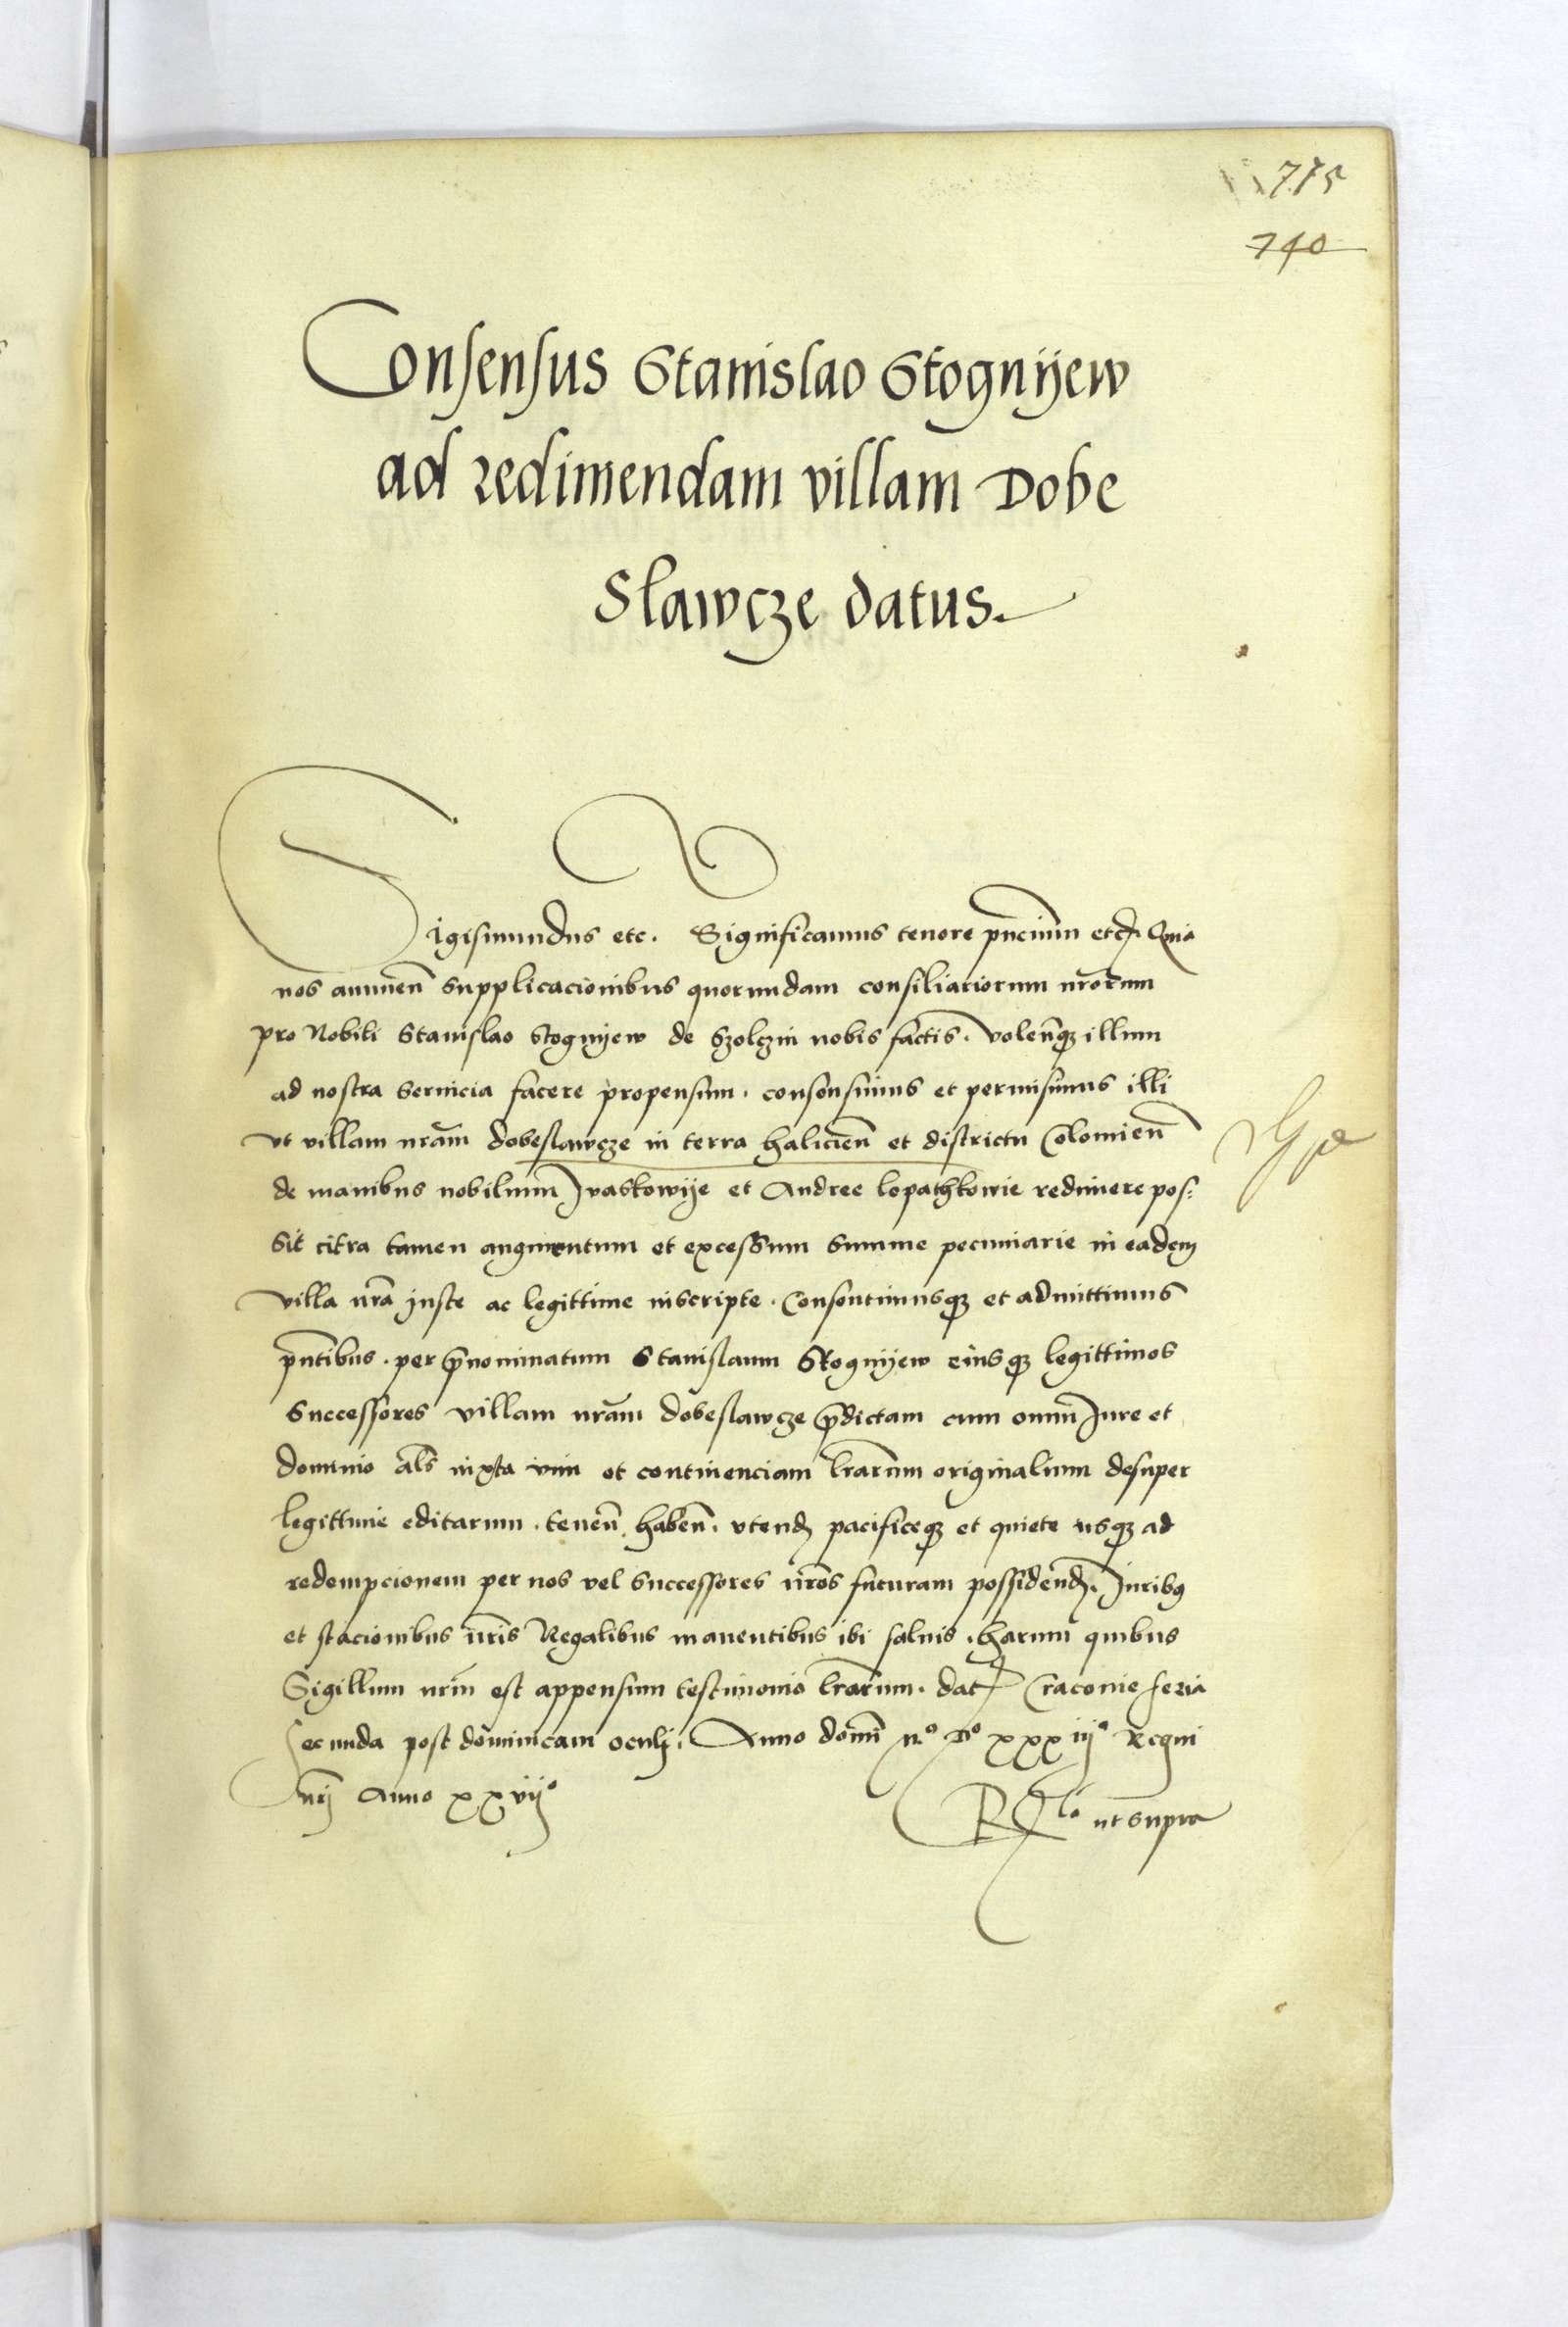 775
740
Consensus Stanislao Stognijew
ad redimendam villam Dobe
Slawcze datus.
Sigismundus etc. Significamus tenore pnciũm etc. Quia
nos annuen̄ supplicacionibus quorundam consiliariorum nrōrum
pro Nobili Stanislao Stognijew de Szolczin nobis factis. volen̄qz illum
ad nostra seruicia facere propensum. consensimus et permisimus illi
vt villam nrām dobeslawcze in terra halicien̄ et districtu Colomien̄
de manibus nobilium Ivaskowije et Andree lopathkowie redimere pos:
sit citra tamen augmentum et excessum summe pecuniarie in eadem
villa nrā juste ac legittime inscripte. Consentimusqz et admittimus
pn̄tibus. per p̄nominatum Stanislaum Stognijew eiusqz legittimos
Successores villam nrām dobeslawcze p̄dictam cum omni Jure et
dominio al̄s iuxta vim et continenciam lr̄arum originalium desuper
legittime editarum. tenen̄. haben̄. vtend pacificeqz et quiete usqz ad
redempcionem per nos vel successores nrōs futuram possidend̄. Juribus
et stacionibus nrīs Regalibus manentibus ibi saluis. harum quibus
Sigillum nrm̄ est appensum testimonio lr̄arum. dat Cracouie feria
secunda post dominicam oculj. Anno domī Mº Dº xxxiijº Regni
nrī Anno xxvijº
Rlo ut supra